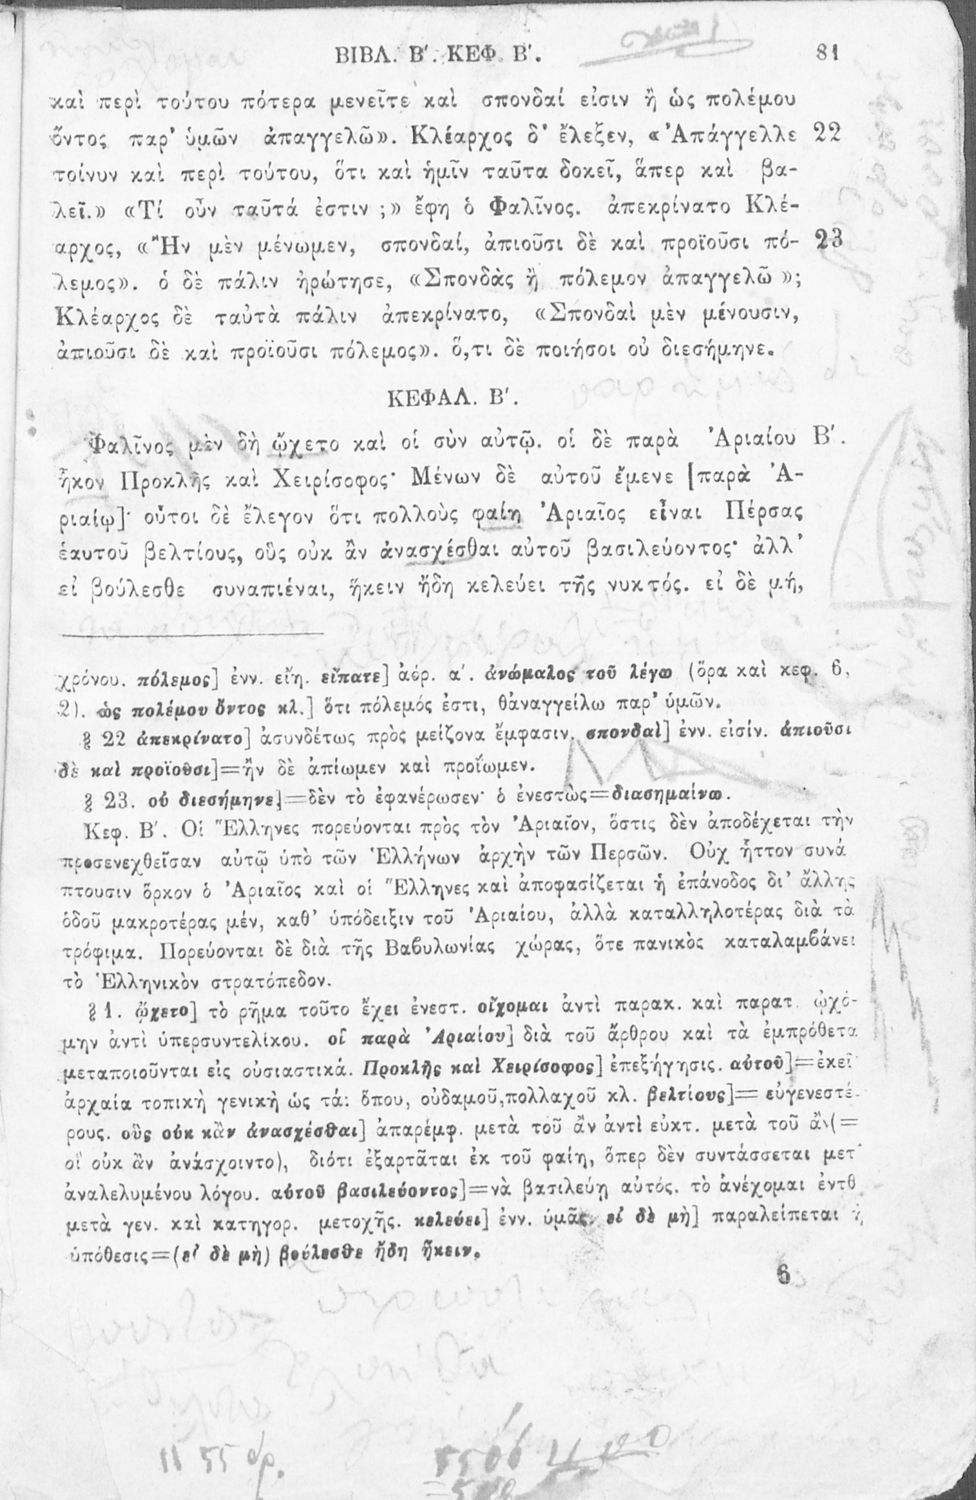 ΒΙΒΛ. Β′. ΚΕΦ. Β′. 81
καὶ περὶ τούτου πότερα μενεῖτε καὶ σπονδαί εἰσιν ἢ ὡς πολέμου
ὄντος παρ' ὑμῶν ἀπαγγελῶ». Κλέαρχος δ' ἔλεξεν, «Ἀπάγγελλε 22
τοίνυν καὶ περὶ τούτου, ὅτι καὶ ἡμῖν ταῦτα δοκεῖ, ἅπερ καὶ βα-
λεῖ.» «Τί οὖν ταῦτά ἐστιν ;» ἔφη ὁ Φαλῖνος. ἀπεκρίνατο Κλέ-
αρχος, «Ἢν μὲν μένωμεν, σπονδαί, ἀπιοῦσι δὲ καὶ προϊοῦσι πό- 23
λεμος». ὁ δὲ πάλιν ἠρώτησε, «Σπονδὰς ἢ πόλεμον ἀπαγγελῶ »;
Κλέαρχος δὲ ταὐτὰ πάλιν ἀπεκρίνατο, «Σπονδαὶ μὲν μένουσιν,
ἀπιοῦσι δὲ καὶ προϊοῦσι πόλεμος». ὅ,τι δὲ ποιήσοι οὐ διεσήμηνε.
ΚΕΦΑΛ. Β′.
Φαλῖνος μὲν δὴ ᾤχετο καὶ οἱ σὺν αὐτῷ. οἱ δὲ παρὰ Ἀριαίου Β′.
ἧκον Προκλῆς καὶ Χειρίσοφος· Μένων δὲ αὐτοῦ ἔμενε [παρὰ Ἀ-
ριαίῳ]· οὗτοι δὲ ἔλεγον ὅτι πολλοὺς φαίη Ἀριαῖος εἶναι Πέρσας
ἑαυτοῦ βελτίους, οὓς οὐκ ἂν ἀνασχέσθαι αὐτοῦ βασιλεύοντος· ἀλλ'
εἰ βούλεσθε συναπιέναι, ἥκειν ἤδη κελεύει τῆς νυκτός. εἰ δὲ μή,
χρόνου. πόλεμος] ἐνν. εἴη. εἴπατε] ἀόρ. α΄. ἀνώμαλος τοῦ λέγω (ὅρα καὶ κεφ. 6,
2). ὡς πολέμου ὄντος κλ.] ὅτι πόλεμός ἐστι, θἀναγγείλω παρ' ὑμῶν.
§ 22 ἀπεκρίνατο] ἀσυνδέτως πρὸς μείζονα ἔμφασιν. σπονδαὶ] ἐνν. εἰσίν. ἀπιοῦσι
δὲ καὶ προϊοῦσι]=ἢν δὲ ἀπίωμεν καὶ προΐωμεν.
§ 23. οὐ διεσήμηνε]=δὲν τὸ ἐφανέρωσεν· ὁ ἐνεστὼς=διασημαίνω.
Κεφ. Β′. Οἱ Ἕλληνες πορεύονται πρὸς τὸν Ἀριαῖον, ὅστις δὲν ἀποδέχεται τὴν
προσενεχθεῖσαν αὐτῷ ὑπὸ τῶν Ἑλλήνων ἀρχὴν τῶν Περσῶν. Οὐχ ἧττον συνά
πτουσιν ὅρκον ὁ Ἀριαῖος καὶ οἱ Ἕλληνες καὶ ἀποφασίζεται ἡ ἐπάνοδος δι' ἄλλης
ὁδοῦ μακροτέρας μέν, καθ' ὑπόδειξιν τοῦ Ἀριαίου, ἀλλὰ καταλληλοτέρας διὰ τὰ
τρόφιμα. Πορεύονται δὲ διὰ τῆς Βαβυλωνίας χώρας, ὅτε πανικὸς καταλαμβάνει
τὸ Ἑλληνικὸν στρατόπεδον.
§ 1. ᾤχετο] τὸ ρῆμα τοῦτο ἔχει ἐνεστ. οἴχομαι ἀντὶ παρακ. καὶ παρατ. ᾠχό-
μην ἀντὶ ὑπερσυντελίκου. οἱ παρὰ Ἀριαίου] διὰ τοῦ ἄρθρου καὶ τὰ ἐμπρόθετα
μεταποιοῦνται εἰς οὐσιαστικά. Προκλῆς καὶ Χειρίσοφος] ἐπεξήγησις. αὐτοῦ]=ἐκεῖ
ἀρχαία τοπικὴ γενικὴ ὡς τά: ὅπου, οὐδαμοῦ, πολλαχοῦ κλ. βελτίους]= εὐγενεστέ-
ρους. οὓς οὐκ κἂν ἀνασχέσθαι] ἀπαρέμφ. μετὰ τοῦ ἂν ἀντὶ εὐκτ. μετὰ τοῦ ἂν(=
οἳ οὐκ ἂν ἀνάσχοιντο), διότι ἐξαρτᾶται ἐκ τοῦ φαίη, ὅπερ δὲν συντάσσεται μετ'
ἀναλελυμένου λόγου. αὐτοῦ βασιλεύοντος]=νὰ βασιλεύῃ αὐτός. τὸ ἀνέχομαι ἐντθ
μετὰ γεν. καὶ κατηγορ. μετοχῆς. κελεύει] ἐνν. ὑμᾶς. εἰ δὲ μὴ] παραλείπεται ἡ
ὑπόθεσις=(εἰ δὲ μὴ) βούλεσθε ἤδη ἥκειν.
6